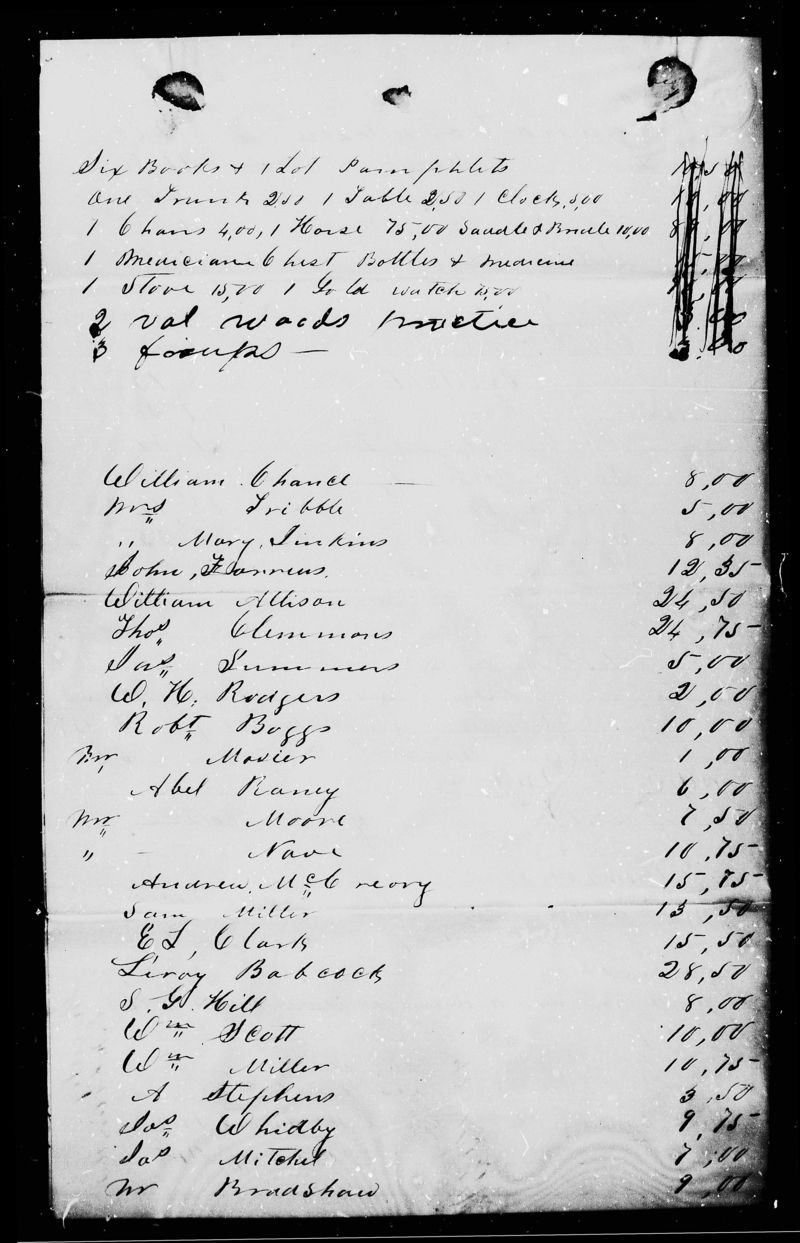 Six Books & 1 Lot Pamphlets
One Trunk 2,50 1 Table 2,50 1 Clock, 5,00 10,00
1 Chairs 4,00, 1 Horse 75,00 Saddle & Bridle 10,00
1 Medician Chest Bottles & medicine
1 Stove 15,00 1 Gold watch
2 vol woods practice
3 forceps —
William Chanel — 8,00
Mrs Tribble 5,00
" Mary, Jinkins 8,00
John, Farrens. 12,35
William Allison 24,50
Thos Clemmons 24,75
Jas Summers 5,00
W. H. Rodgers 2,00
Robt Boggs 10,00
Mr Mosier 1,00
Abel Raney 6,00
Mr Moore 7,50
" Nave 10,75
Andrew, McCreory 15,75
Sam Miller 13,50
E L, Clark 15,50
Leroy Babcock 28,50
S. G. Hill 8,00
Wm Scott 10,00
Wm Miller 10,75
A Stephens 3,50
Jas Whidby 9,75
Jas Mitchel 7,00
Mr Bradshaw 9,00